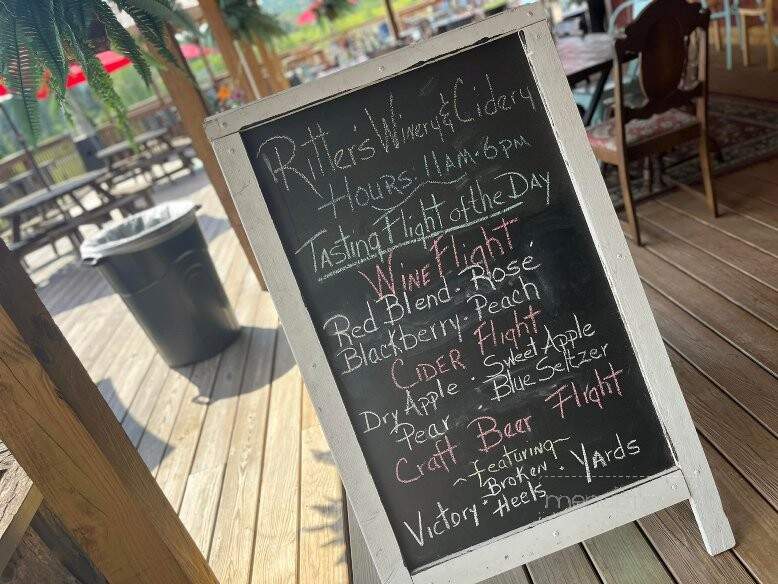 Ritter's Winery & Cidery
Hours · 11am · 6pm
Tasting Flight of the Day
Wine Flight
Red Blend · Rosé
Blackberry · Peach
Cider Flight
Dry Apple · Sweet Apple
Pear · Blue Seltzer
Craft Beer Flight
~Featuring~
Victory · Broken Heels · Yards